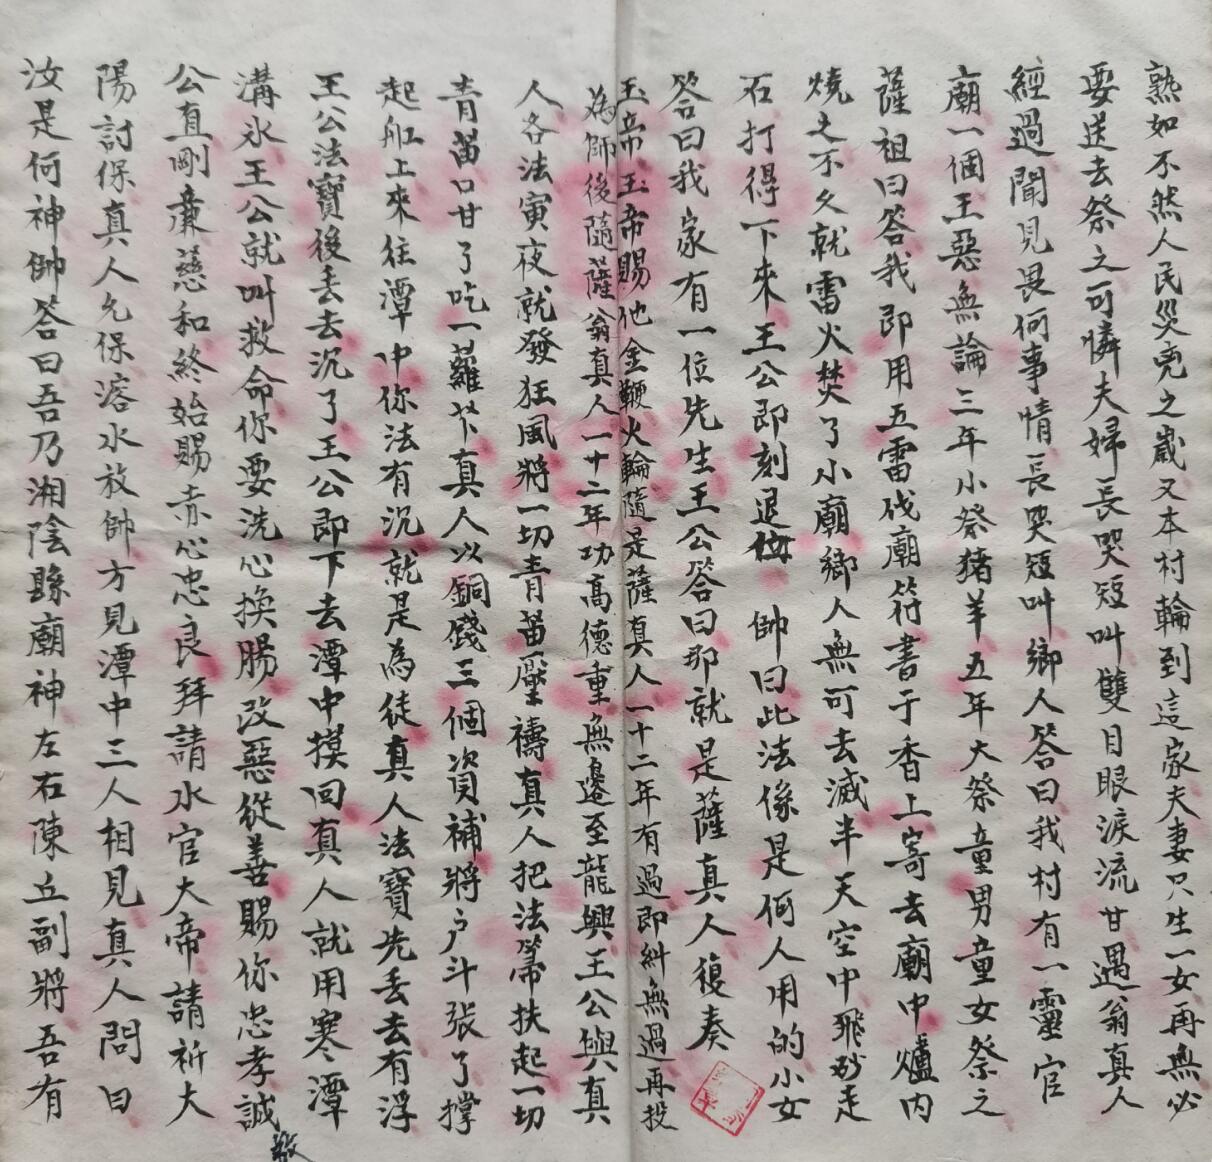 熟如不然人民災兇之歲又本村輪到這家夫妻只生一女再無必
要送去祭之可憐夫婦長哭短叫雙目眼淚流甘遇翁真人
經過聞見畏何事情長哭短叫鄉人答曰我村有一靈官
廟一個王惡無論三年小祭猪羊五年大祭童男童女祭之
薩祖曰答我即用五雷伐廟符書于香上寄去廟中爐内
燒之不久就雷火焚了小廟鄉人無可去滅半天空中飛砂走
石打得下來王公即刻退位 帥曰此法像是何人用的小女
答曰我家有一位先生王公答曰那就是薩真人復奏
玉帝玉帝賜他金鞭火輪隨是薩真人一十二年有過即糾無過再投
為師後隨薩翁真人一十二年功高德重無邊至龍興王公與真
人各法寅夜就發狂風將一切青苗壓禱真人把法帶扶起一切
青苗口甘了吃一蘿卜真人以銅錢三個資補將戶斗張了撑
起船上來往潭中你法有沉就是為徒真人法寶先丢去有浮
王公法寶後丢去沉了王公即下去潭中摸回真人就用寒潭
溝氷王公就叫救命你要洗心換腸改惡從善賜你忠孝誠
敬
公直剛亷慈和終始賜赤心忠良拜請水官大帝請祈大
陽討保真人允保溶水放帥方見潭中三人相見真人問曰
汝是何神帥答曰吾乃湘陰縣廟神左右陳丘副將吾有